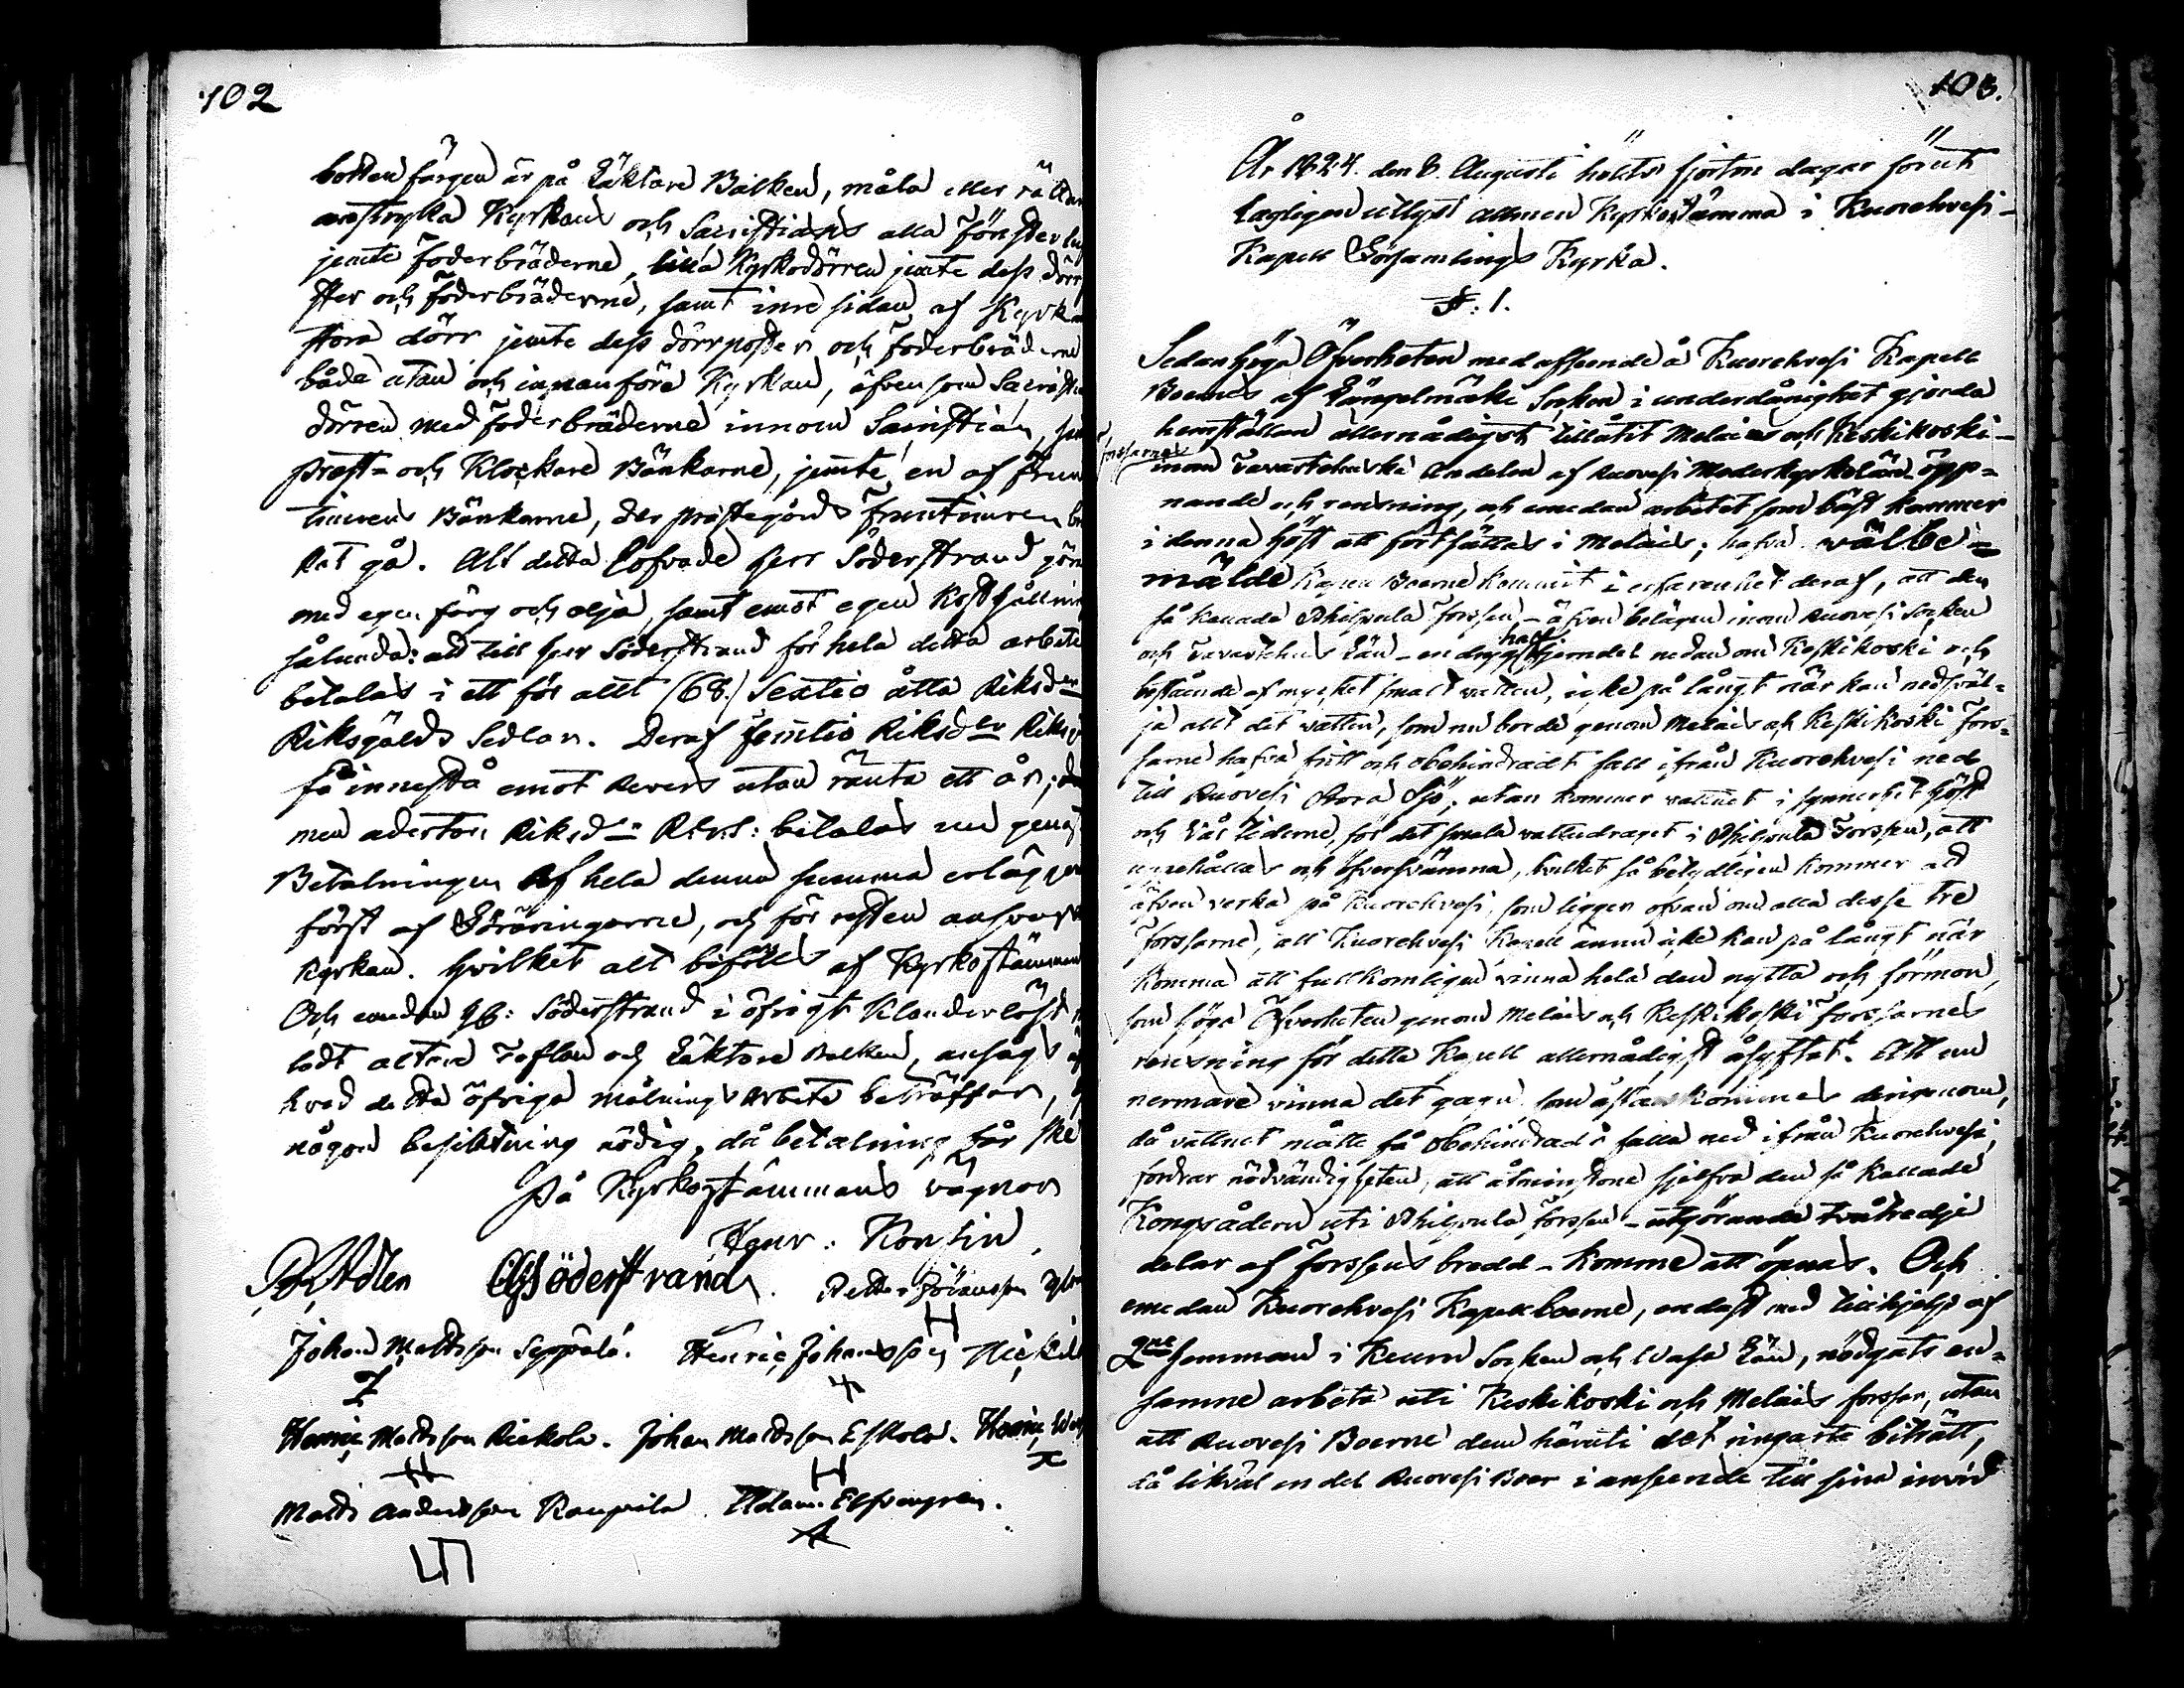 102
botten färgen är på Läktare Balken, måla eller rättare
anstryka Kyrkans och Sacristians alla Fönster
jemte Foderbräderne, lilla Kyrkodörren jemte dess dörr
ster och Foderbräderne, samt inre sidan af Kyrkans
stora dörr jemte dess dörrposter och foderbräderne
både utan och innanföre Kyrkan, äfvensom Sacristie
dörren med foderbräderne innom Sacristian,
Prest- och Klockare Bänkarne, jemte en af Frun
timrens Bänkarne, der prestegårds Fruntimren
kat gå. Alt detta lofvade Herr Söderstrand göra
med egen färg och olja, samt emot egen Kosthållning
sålunda: att till Herr Söderstrand för hela detta arbete
betalas i ett för allt (68.) Sextio åtta Riksder
Riksgälds Sedlar. Deraf femtio Riksder Riksg
få innestå emot Revers utan ränta ett år;
men aderton Riksdr R.G.S: betalas nu genast
Betalningen af hela denna summa erlägges
först af Göräningarne, och för resten ansvarar
Kyrkan. Hvilket alt bifölls af Kyrkostämman
Och emedan Hr: Söderstrand i öfrigt Klanderlöst
lodt altare Taflan och Läktare Balken, ansågs
hvad detta öfriga målnings arbete beträffar,
någon besiktning nödig, då betalning får ske
På Kyrkostämmans vägnar
Henr: Konsin
Adlen CG Söderstrand. Petter Jöransson
Johan Mattsson Seppälä. Henric Johansson
Henric Mattsson Riekola. Johan Mattsson Eskola. Henric
Matts Andersson Raupila. Adam Elfvengren.
103.
År 1824. den 8. Augusti hölts fjorton dagar förut
lagligen utlyst allmen Kyrkostämma i Kuorehvesi-
Kapell Församlings Kyrka.
§: 1.
Sedan Höga Öfverheten med afseende å Kuorehvesi Kapell
Boernes af Längelmäki Socken i underdånighet gjorda
hemställan allernådigst tillåtit Melais och Keskikoski-
forssarnes
inom Tavastehuska Andelen af Ruovesi Moderkyrkolän öpp-
nande och rensning, och emedan arbetet som bäst kommer
i denna Höst att fortsättas i Melais; hafva välbe-
mälde Kapell Boerne kommit i erfarenhet deraf, att den
så kallade Philpula Forssen - äfven belägen inom Ruovesi Socken
half
och Tavastehus Län - en dryg fjerndel nedan om Keskikoski och
bestående af mycket smalt vatten, icke på långt när kan nedsväl-
ja allt det vatten, som nu borde genom Melais och Keskikoski Fors-
sarne hafva fritt och obehindradt fall ifrån Kuorehvesi ned
till Ruovesi Stora Sjö; utan kommer vattnet i synnerhet Höst
och Vår tiderne, för det smala vattudraget i Philpula Forssen, att
uppehållas och öfversvämma, hvilket så betydligen kommer att
äfven verka på Kuorehvesi, som ligger ofvan om alla desse tre
Forssarne, att Kuorehvesi Kapell ännu icke kan på långt när
komma att fullkomligen vinna hela den nytta och förmon,
som Höga Öfverheten genom Melais och Keskikoski Forssarnes
rensning för detta Kapell allernådigst åsyftat. Att nu
nermare vinna det gagn, som åstadkommes derigenom,
då vattnet måtte få obehindradt falla ned ifrån Kuorehvesi,
fordrar nödvändigheten, att åtminstone sjelfva den så kallade
Kongsådern uti Philpula Forssen - utgörande tvåtredje
delar af Forssens bredd - komme att öpnas. Och
emedan Kuorehvesi Kapellboerne, endast med tillhjelp af
2ne Hemman i Keuru Socken och Wasa Län, nödgats en-
samne arbeta uti Keskikoski och Melais forssar, utan
att Ruovesi Boerne dem häruti det ringaste biträtt,
då likväl en del Ruovesi Boer i anseende till sina invid